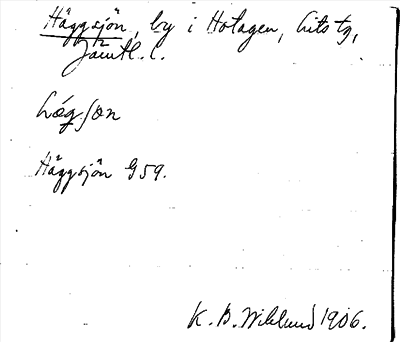 Häggsjön, by i Hotagen, Lits tg,
Jämtl. l.
Häggsjön G59.
K. B. Wiklund 1906.